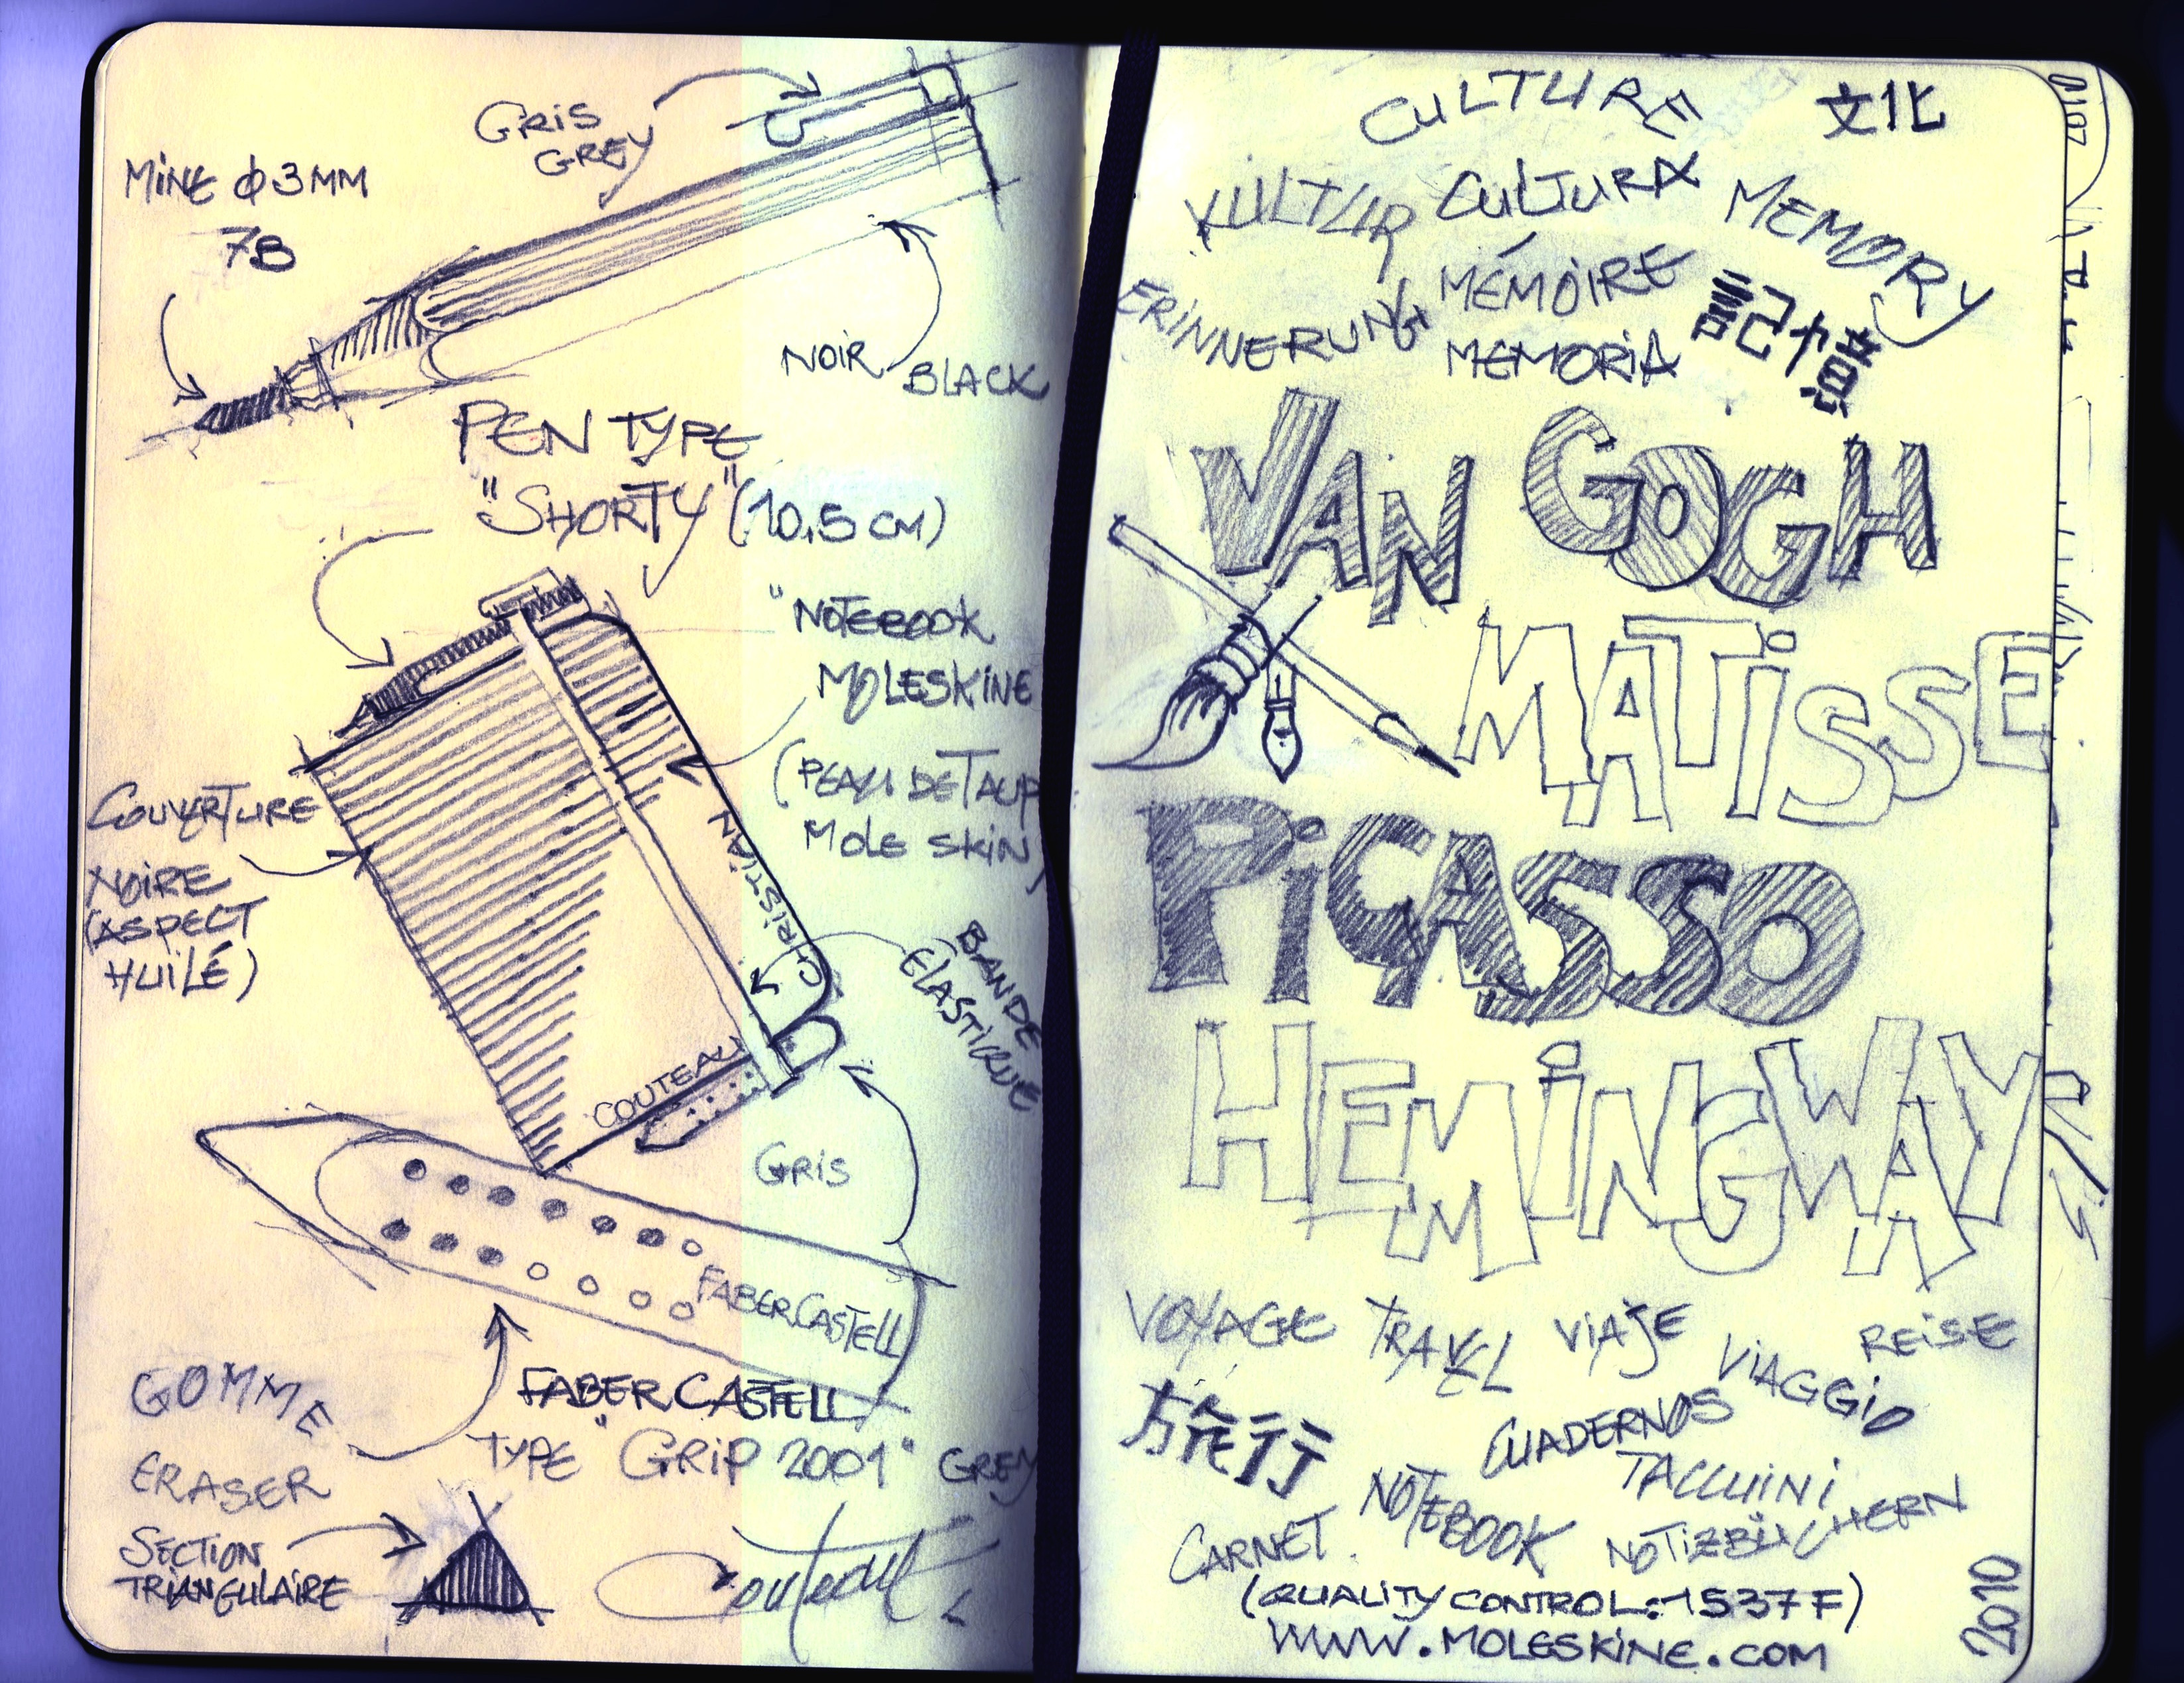 GRIS
GREY
MINE Φ 3 MM
7B
NOIR BLACK
PEN TYPE
"SHORTY" (10,5 CM)
"NOTEBOOK
MOLESKINE
(PEAU DE TAUP
MOLE SKIN)
COUVERTURE
NOIRE
(ASPECT
HUILÉ)
CHRISTIAN
COUTEAU
BANDE
ÉLASTIQUE
GRIS
FABER CASTELL
GOMME
ERASER
FABER CASTELL
TYPE "GRIP 2001" GREY
SECTION
TRIANGULAIRE
Couteau
CULTURE 文化
KULTUR CULTURA MEMORY
ERINNERUNG MÉMOIRE 記憶
MEMORIA
VAN GOGH
MATISSE
PICASSO
HEMINGWAY
VOYAGE TRAVEL VIAJE VIAGGIO REISE
旅行
CUADERNOS
TACCUINI
CARNET NOTEBOOK NOTIZBÜCHERN
(QUALITY CONTROL:1537F)
WWW.MOLESKINE.COM
2010